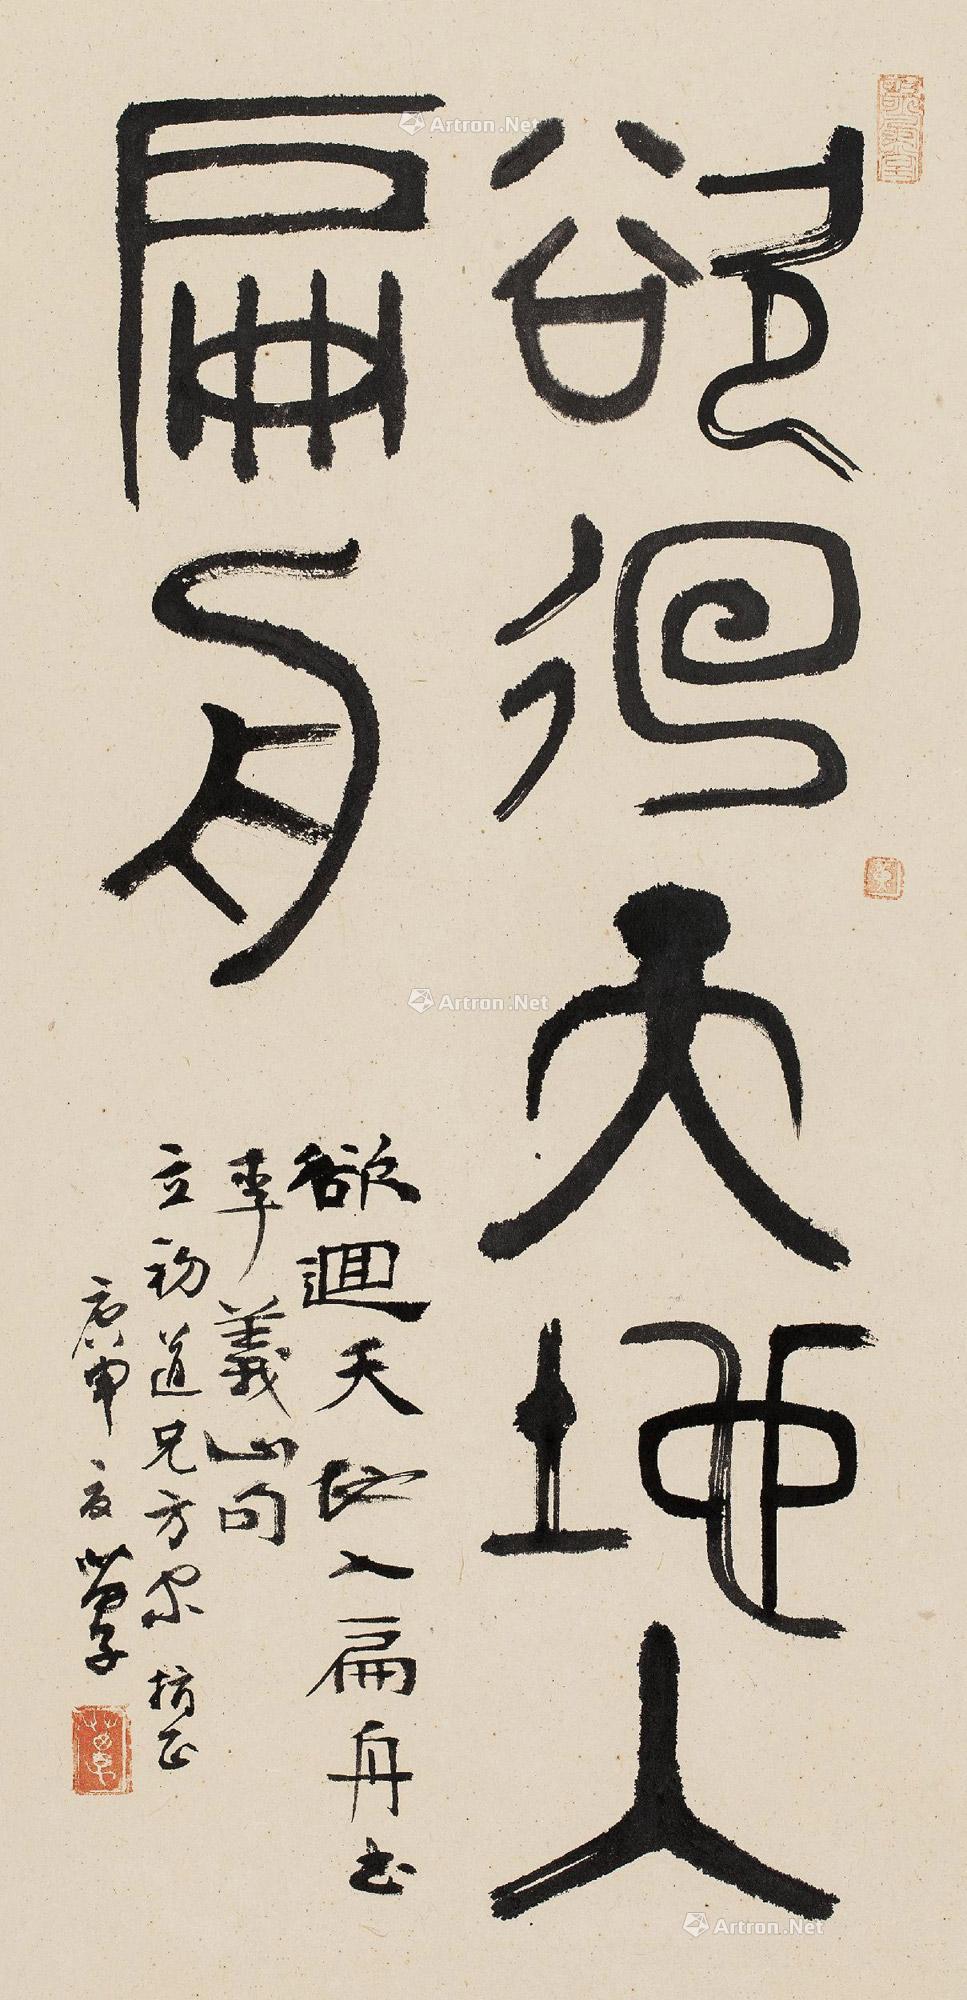 欲徊天地入
扁舟
欲迴天地入扁舟 书
李義山句
立初道兄方家 指正
庚申 夏 草
Artron.Net
Artron.Net
Artron.Net